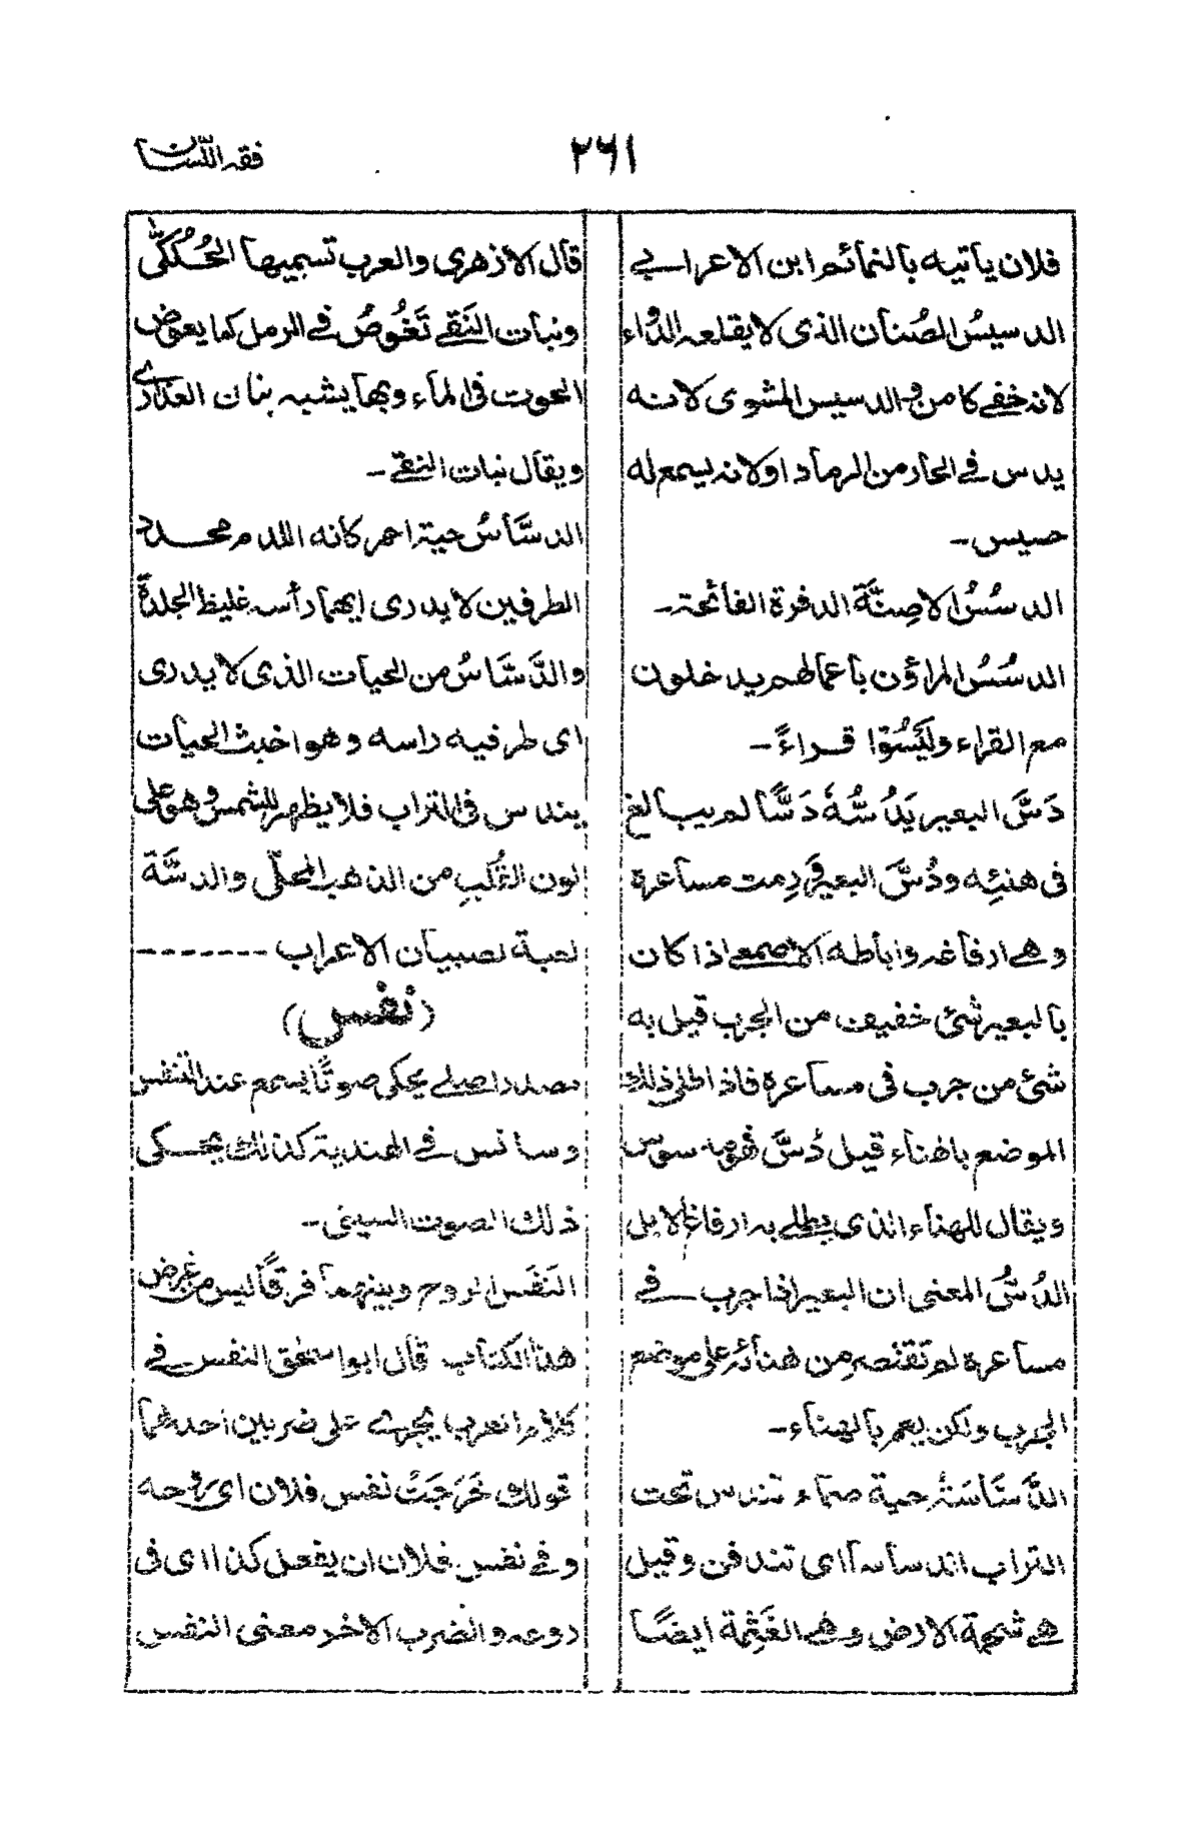 فقه اللسان
۲۶۱
فلان ياتيه بالنمائم ابن الاعرابي
الدسيسُ الصُنان الذي لا يقلعه الدواء
لانه خفي كامن والدسيس المشوى لانه
يدس في الحار من الرماد اولانه يسمع له
حسيس ـ
الدسُسُ الاصِنَّة الدفرة الفائحة ـ
الدسُسُ المراؤن باعمالهم يدخلون
مع القراء ولَيسُوْا قراءً ـ
دَسَّ البعير يَدُسُّهٗ دَسًّا لم يبالغ
فى هنئِه ودُسَّ البعير وَرِمت مساعره
وهي ارفاغه واباطه الاصمعي اذا كان
بالبعير شئ خفيف من الجرب قيل به
شئ من جرب فى مساعره فاذا طلى ذلك
الموضع بالهناء قيل دُسَّ فهو مدسوس
ويقال للهناء الذي يطلے به ارفاغ الابل
الدُسُّ المعنى ان البعير اذا جرب في
مساعره لم تقتصر من هنائه على موضع
الجرب ولكن يعم بالهناء ـ
الدَّسَّاسَةُ حية صماء تندس تحت
التراب اندساسا اى تندفن وقيل
هي شحمة الارض وهي الغَثِمة ايضًا
قال الازهرى والعرب تسميها الحُلُكّٰى
ونبات النَقٰے تَغُوصُ في الرمل كما يغوض
الحوت فى الماء وبها يشبه بنان العذارے
ويقال نبات النقے ـ
الدسَّاسُ حية احمر كانه الدم محدد
الطرفين لا يدرى ايهما رأسه غليظ الجلدة
والدَّسَّاسُ من الحيات الذى لا يدرى
اى طرفيه راسه وهو اخبث الحيات
يندس فى التراب فلا يظهر للشمس وهو على
لون القُلبِ من الذهب المحلّى والدسَّة
لعبة لصبيان الاعراب -------
(نفس)
مصدر اصلے يحكى صوتًا يسمع عند التنفس
وسانس في الهندية كذلك يحكى
ذلك الصوت السينى ـ
النَفَس الروح وبينهما فرقًا ليس من غرض
هذا الكتاب قال ابو اسحق النفس في
كلام العرب يجرے على ضربين احدهما
قولك خَرَجَتْ نفس فلان اى روحه
وفي نفس فلان ان يفعل كذا اى فى
روعه والضرب الاخر معنى النفس